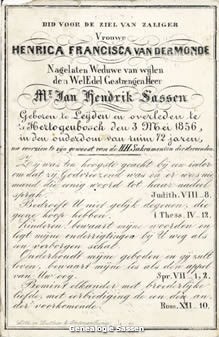 BID VOOR DE ZIEL VAN ZALIGER
Vrouwe
HENRICA FRANCISCA VAN DER MONDE
Nagelaten Weduwe van wijlen
de WelEdel Gestrengen Heer
Mr Jan Hendrik Sassen
Geboren te Leyden en overleden te
's Hertogenbosch den 3 Mei 1856,
in den ouderdom van ruim 72 jaren,
na voorzien te zijn geweest van de HH. Sakramenten der stervenden.
Zij was ten hoogste geacht bij een ieder
om dat zij Godvreezend was en er was nie-
mand die eenig woord tot haar nadeel
sprak. Judith. VIII. 8.
Bedroeft U niet gelijk degenen, die
geene hoop hebben. 1 Thess. IV. 12.
Kinderen, bewaart mijne woorden en
legt mijne onderrigtingen bij U weg als
een verborgen schat.
Onderhoudt mijne geboden en gij zult
leven, bewaart mijne les als den appel
van Uw oog. Spr. VII. 1, 2.
Bemint elkander met broederlijke
liefde, met eerbiediging de een den an-
der voorkomende. Rom. XII. 10.
Genealogie Sassen